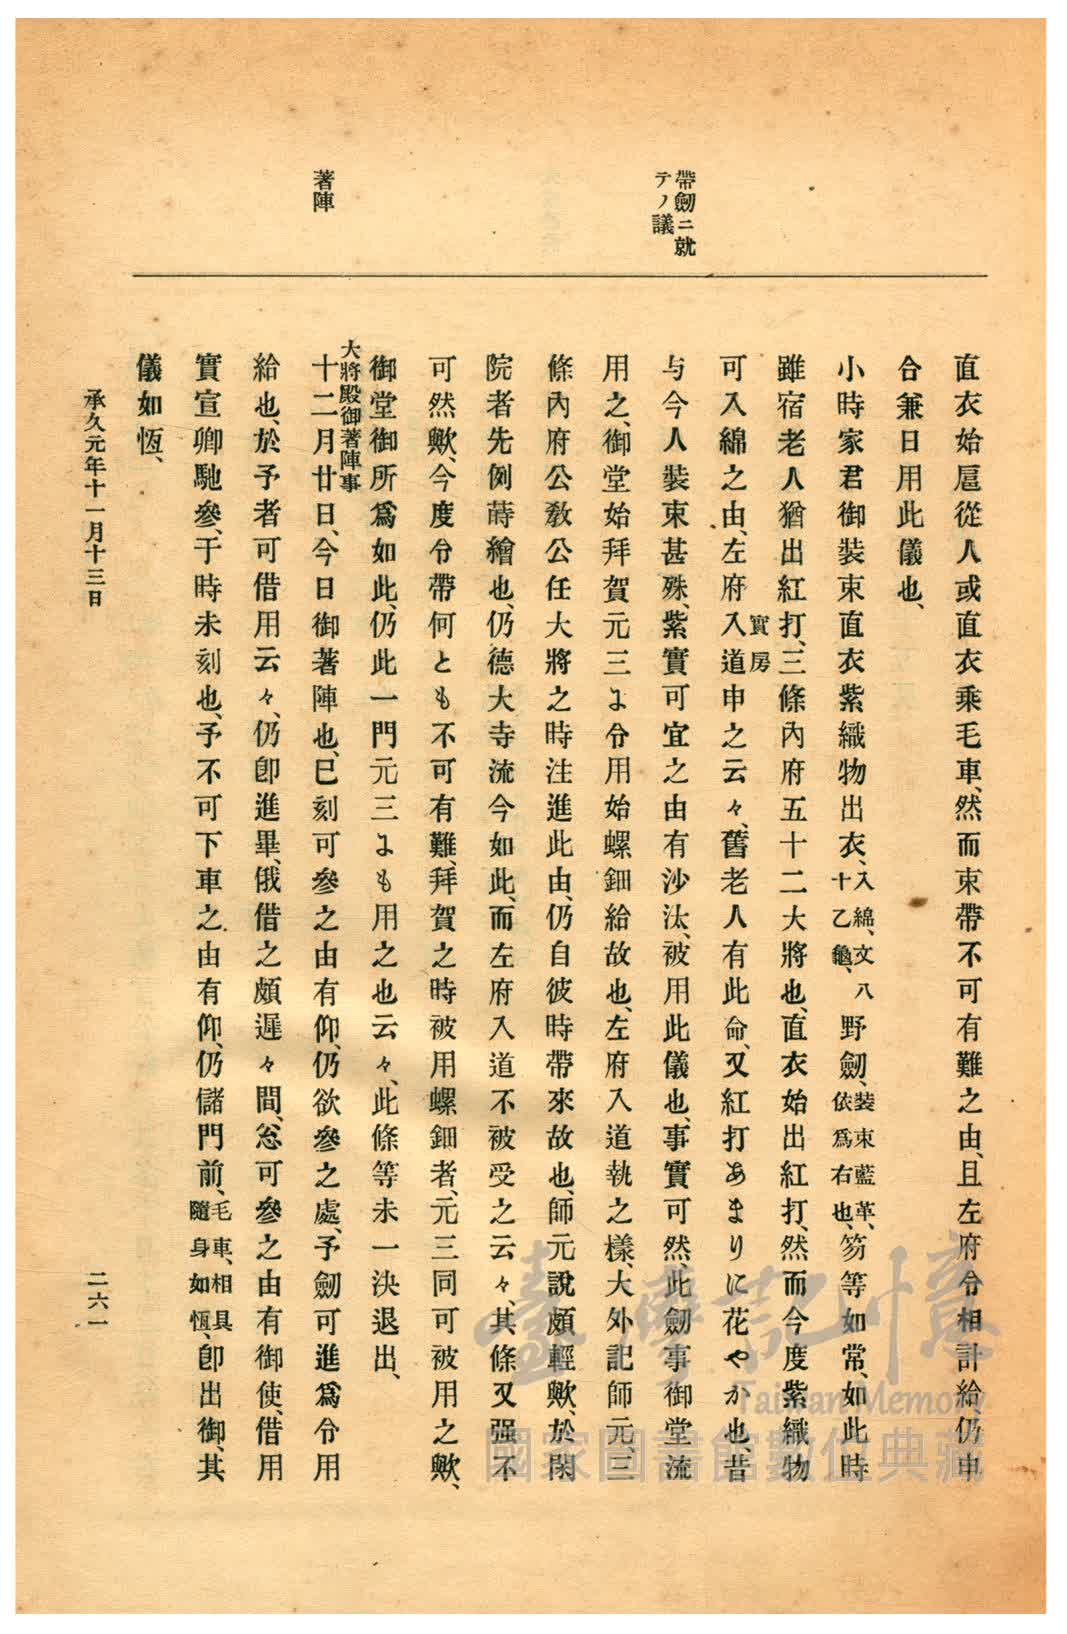 帶劒ニ就
テノ議
著陣
直衣始扈從人或直衣乘毛車、然而束帶不可有難之由、且左府令相計給、仍申
合兼日用此儀也、
小時家君御裝束直衣紫織物出衣、入綿、文八十乙龜、野劒、裝束藍革、依爲右也、笏等如常、如此時
雖宿老人猶出紅打、三條內府五十二大將也、直衣始出紅打、然而今度紫織物
可入綿之由、左府入道實房申之云々、舊老人有此命、又紅打あまりに花やか也、昔
与今人裝束甚殊、紫實可宜之由有沙汰、被用此儀也、事實可然、此劒事御堂流
用之、御堂始拜賀元三よ令用始螺鈿給故也、左府入道執之樣、大外記師元、三
條內府公敎公任大將之時注進此由、仍自彼時帶來故也、師元說頗輕歟、於閑
院者先例蒔繪也、仍德大寺流今如此、而左府入道不被受之云々、其條又强不
可然歟、今度令帶何とも不可有難、拜賀之時被用螺鈿者、元三同可被用之歟、
御堂御所爲如此、仍此一門元三よも用之也云々、此條等未一決退出、
大將殿御著陣事
十二月廿日、今日御著陣也、巳刻可參之由有仰、仍欲參之處、予劒可進爲令用
給也、於予者可借用云々、仍卽進畢、俄借之頗遲々間、忩可參之由有御使、借用
實宣卿馳參、于時未刻也、予不可下車之由有仰、仍儲門前、毛車、相具隨身如恆、卽出御、其
儀如恆、
承久元年十一月十三日
二六一
臺灣記憶
Taiwan Memory
國家圖書館數位典藏